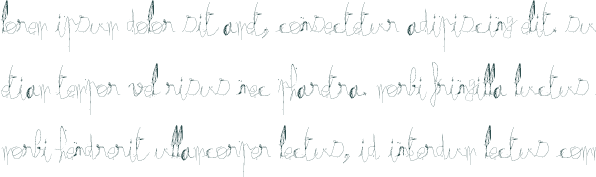 lorem ipsum dolor sit amet, consectetur adipiscing elit. su
etiam tempor vel risus nec pharetra. morbi fringilla luctus
morbi hendrerit ullamcorper lectus, id interdum lectus com